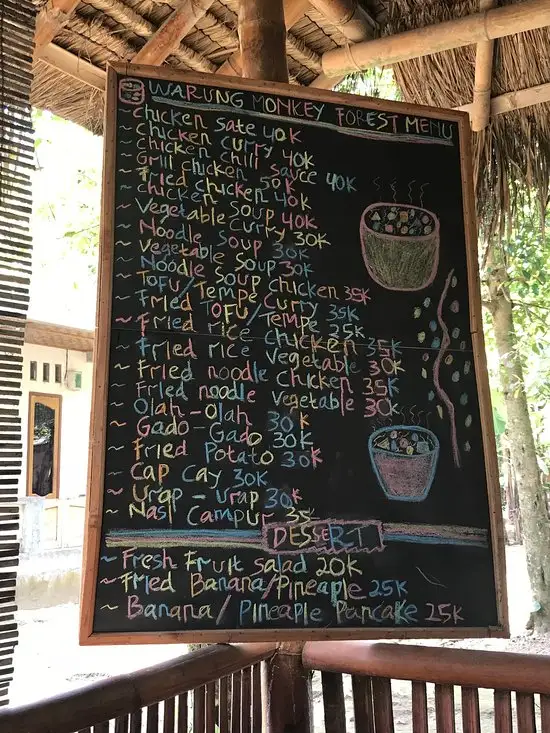 WARUNG MONKEY FOREST MENU
~ Chicken sate 40K
~ Chicken curry 40K
~ Chicken chili sauce 40K
~ Grill chicken 50K
~ Fried chicken 40K
~ Chicken soup 40K
~ Vegetable curry 30K
~ Noodle soup 30K
~ Vegetable soup 30K
~ Noodle soup chicken 35K
~ Tofu/Tempe curry 35K
~ Fried Tofu/Tempe 25K
~ Fried rice chicken 35K
~ Fried rice vegetable 30K
~ Fried noodle chicken 35K
~ Fried noodle vegetable 30K
~ Olah-Olah 30K
~ Gado-Gado 30K
~ Fried Potato 30K
~ Cap Cay 30K
~ Urap-Urap 30K
~ Nasi Campur 35K
DESSERT
~ Fresh Fruit salad 20K
~ Fried Banana/Pineaple 25K
~ Banana/Pineaple Pancake 25K